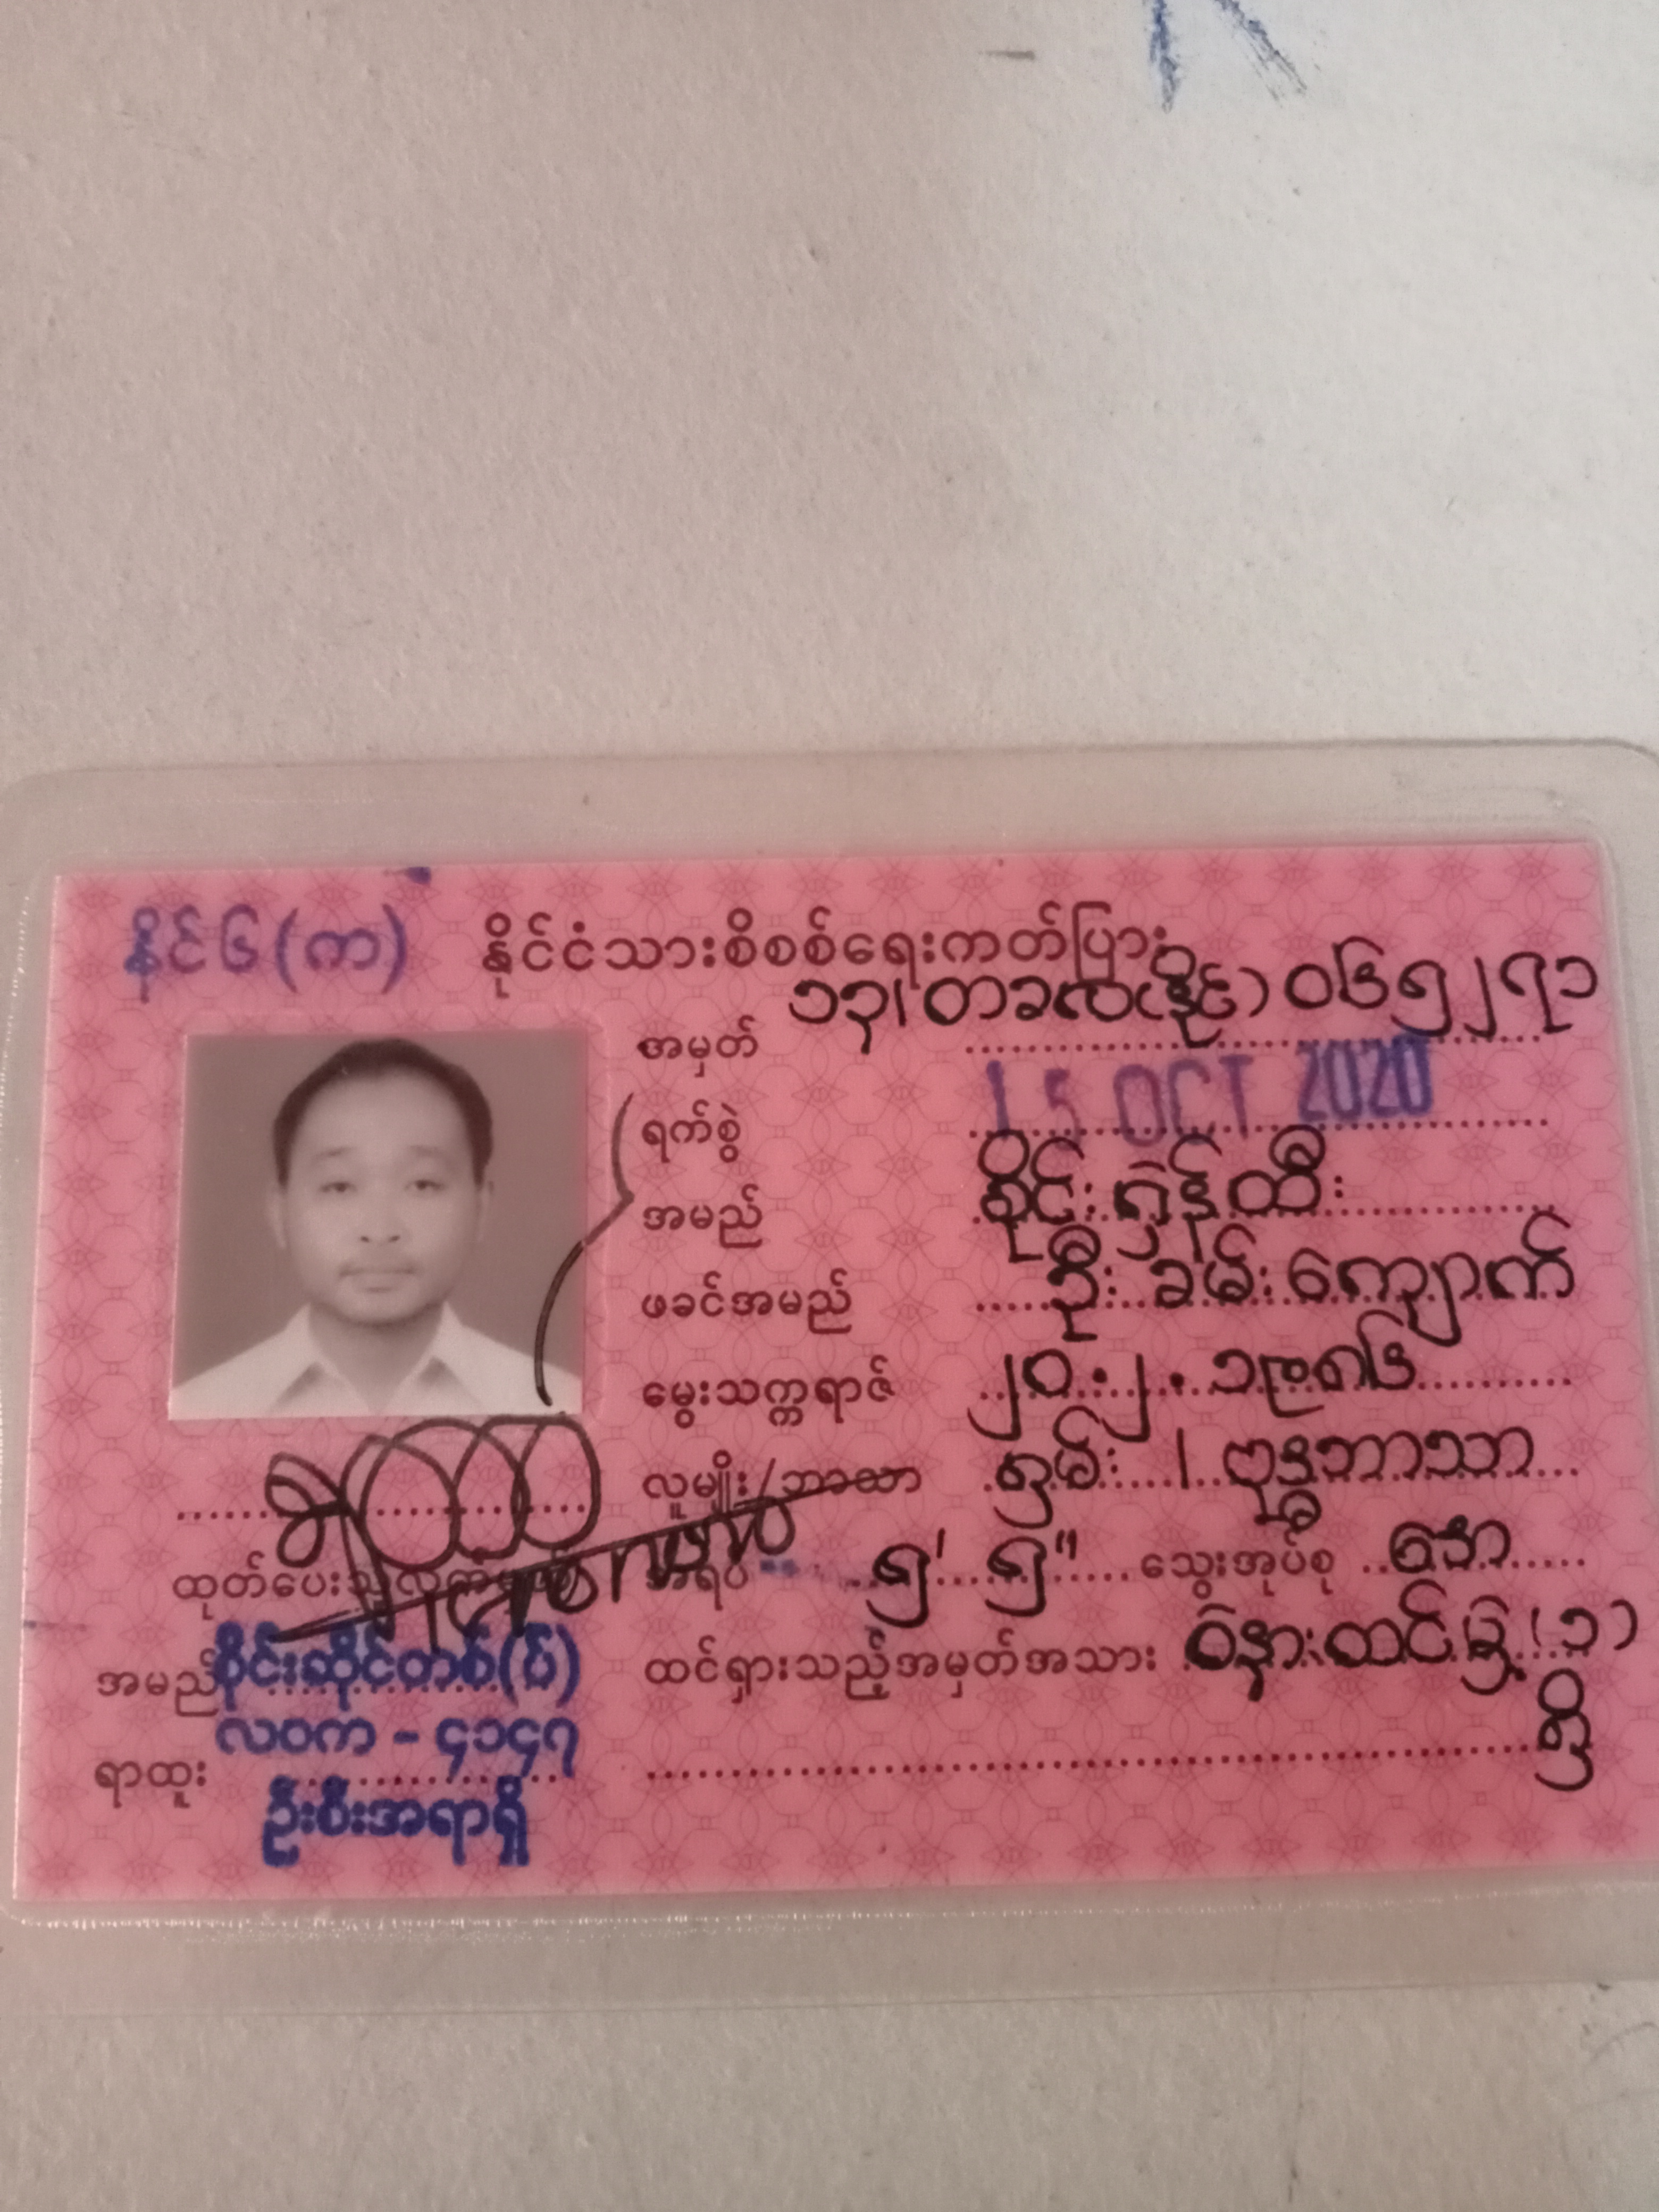 နိုင်၆(က) နိုင်ငံသားစိစစ်ရေးကတ်ပြား
အမှတ် ၁၃/တခလ(နိုင်)၀၆၅၂၇၁
ရက်စွဲ 15 OCT 2020
အမည် စိုင်းရှဲန်ထီး
ဖခင်အမည် ဦးခမ်းကျောက်
မွေးသက္ကရာဇ် ၂၀.၂.၁၉၈၆
လူမျိုး/ဘာသာ ရှမ်း / ဗုဒ္ဓဘာသာ
အရပ် ၅' ၅" သွေးအုပ်စု အော
ထင်ရှားသည့်အမှတ်အသား ဝဲနားထင်မှဲ့(၁)
ရှိ
ထုတ်ပေးသူလက်မှတ်
အမည် စိုင်းဆိုင်တစ်(ပ်)
လဝက - ၄၁၄၇
ရာထူး ဦးစီးအရာရှိ